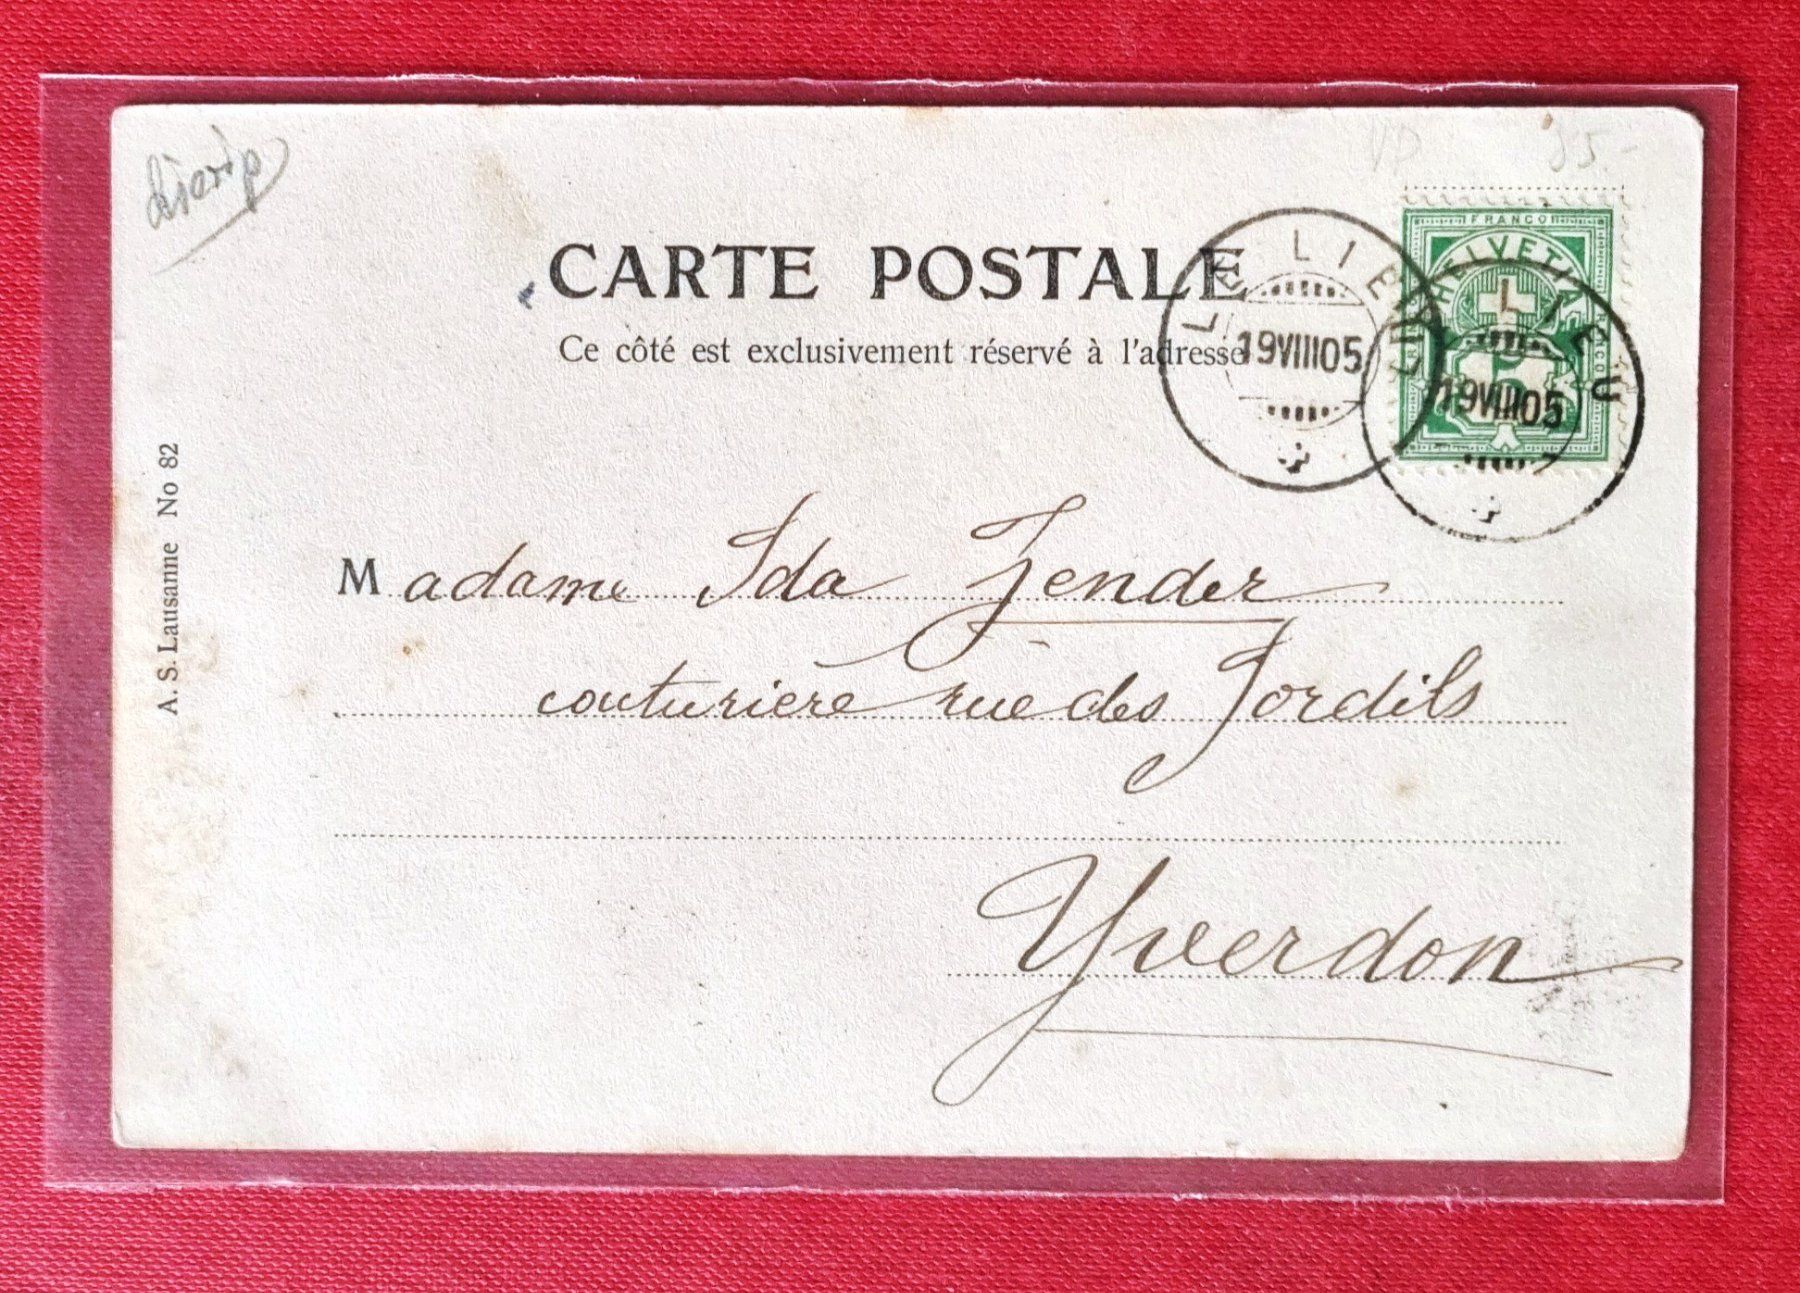 VP 35.-
CARTE POSTALE
Ce côté est exclusivement réservé à l'adresse
LE LIEU
19 VIII 05
FRANCO
HELVETIA
FRANCO
FRANCO
5
LE LIEU
19 VIII 05
A. S. Lausanne No 82
Madame Ida Zender
couturière rue des Jordils
Yverdon